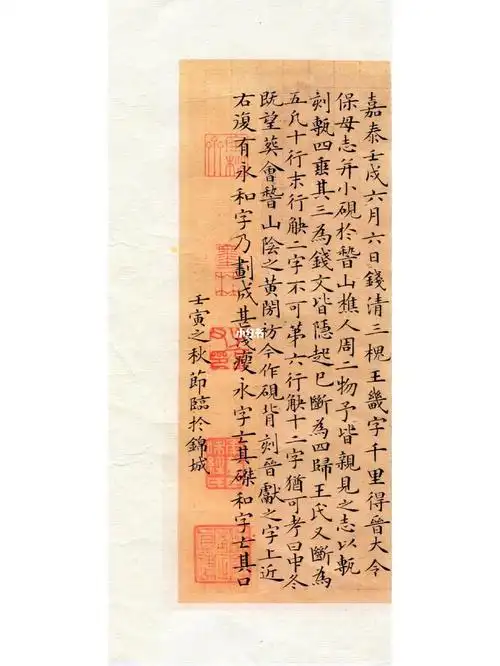 嘉泰壬戌六月六日錢清三槐王畿字千里得晉大令
保母志并小硯於稽山樵人周二物予皆親見之志以甎
刻甎四垂其三為錢文皆隱起已斷為四歸王氏又斷為
五凡十行末行缺二字不可第六行缺十二字猶可考曰中冬
既望葬會稽山陰之黃閍今作硯背刻晉獻之字上近
右復有永和字乃劃成甚淺瘦永字亡其磔和字亡其口
壬寅之秋節臨於錦城
小红书